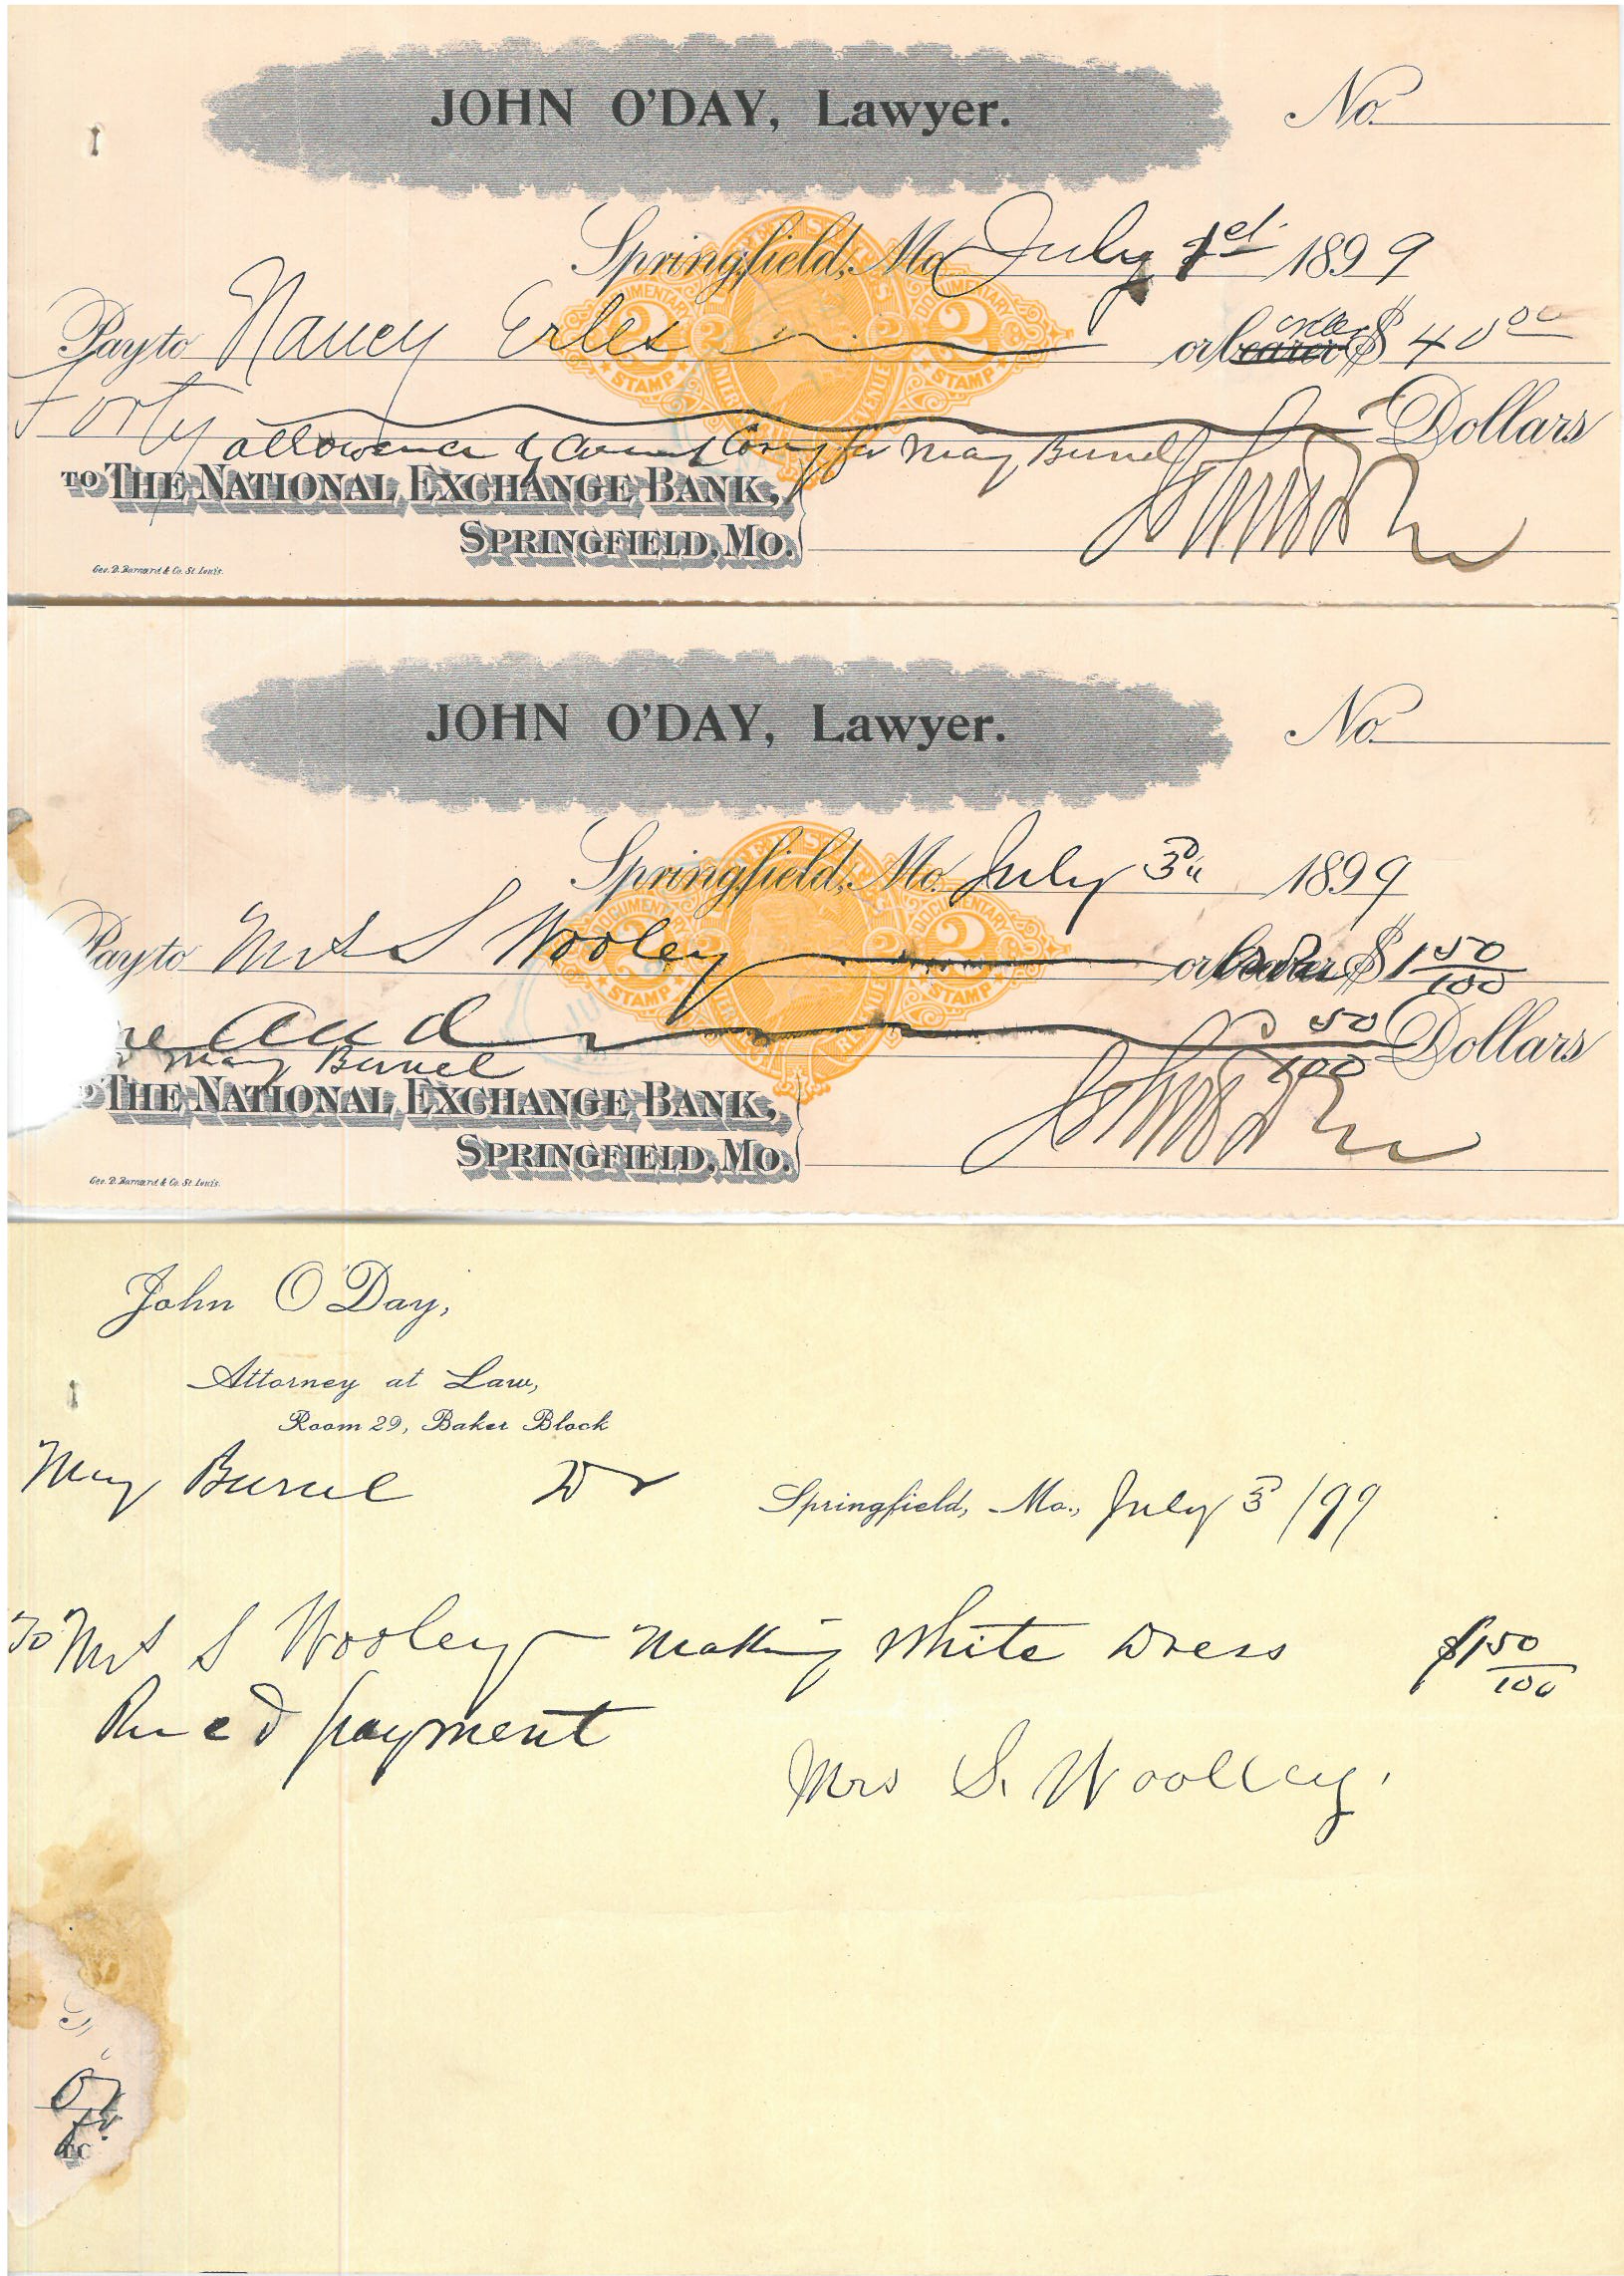 JOHN O'DAY, Lawyer.
No.
Springfield, Mo. July 1st 1899
Pay to Nancy Erles or bearer order $ 40 00
Forty Dollars
allowance by County Court for May Burnel
TO THE NATIONAL EXCHANGE BANK,
SPRINGFIELD, MO.
Geo. D. Barnard & Co. St. Louis.
JOHN O'DAY, Lawyer.
No.
Springfield, Mo. July 3d 1899
Pay to Mrs S Wooley or $ 1 50/100
ne and 50/100 Dollars
May Burnel
THE NATIONAL EXCHANGE BANK,
SPRINGFIELD, MO.
Geo. D. Barnard & Co. St. Louis.
John O'Day,
Attorney at Law,
Room 29, Baker Block
May Burnel Dr
Springfield, Mo., July 3 /99
To Mrs S Wooley Making White Dress $1 50/100
Recd payment
Mrs S. Woolley.
O
for
TO